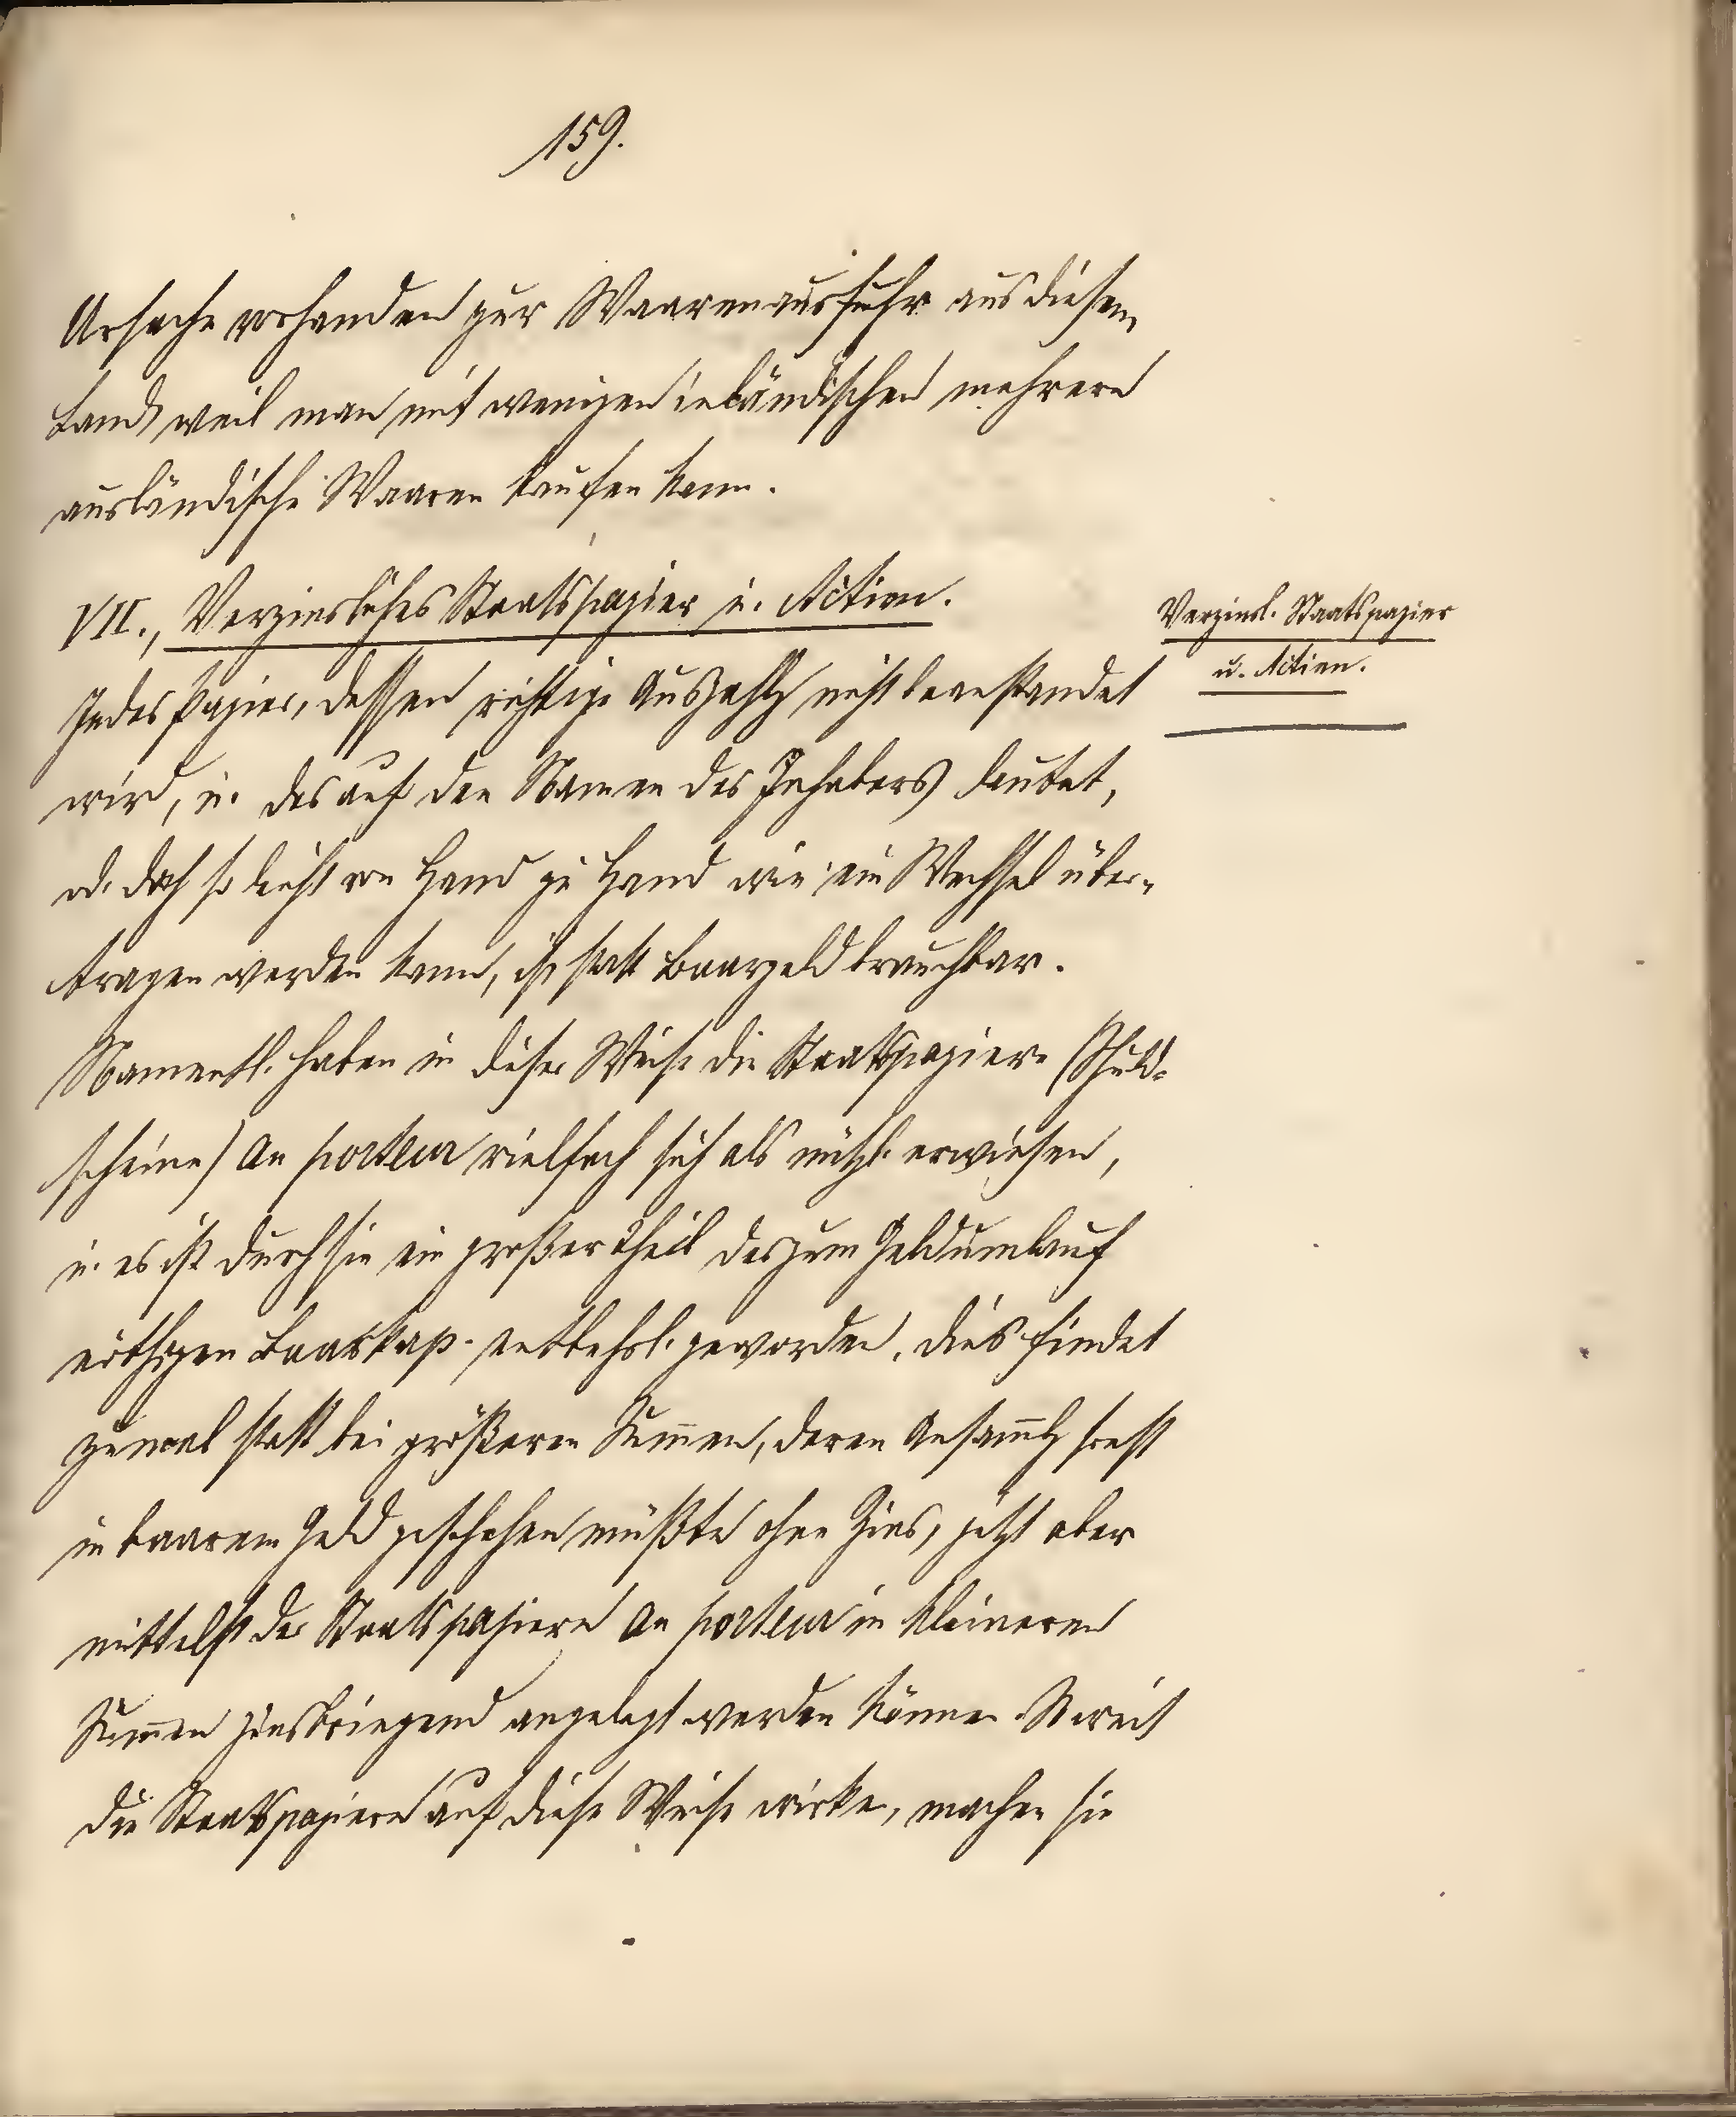 159.
Ursache vorhanden zur Waarenausfuhr aus diesem
Land, weil man mit wenigen inländischen mehrere
ausländische Waaren kaufen kann.
VII., Verzinsliches Staatspapier u. Actien.
Verzinsl. Staatspapier
u. Actien.
Jedes Papier, dessen richtige Auszahlg nicht beanstandet
wird, u. das auf den Namen des Inhabers lautet,
od. doch so leicht von Hand zu Hand wie ein Wechsel über-
tragen werden kann, ist statt Baargeld brauchbar.
Namentl. haben in dieser Weise die Staatspapiere (Schuld-
scheine) au porteur vielfach sich als nützl. erwiesen,
u. es ist durch sie ein großer Theil des zum Geldumlauf
nöthigen Baarkap. entbehrl. geworden, dies findet
zumal statt bei größeren Sum̄en, deren Ansam̄lg sonst
in baarem Geld geschehen müßte ohne Zins, jetzt aber
mittelst der Staatspapiere au porteur in kleineren
Sum̄en zinsbringend angelegt werden können. Soweit
die Staatspapiere auf diese Weise wirken, machen sie